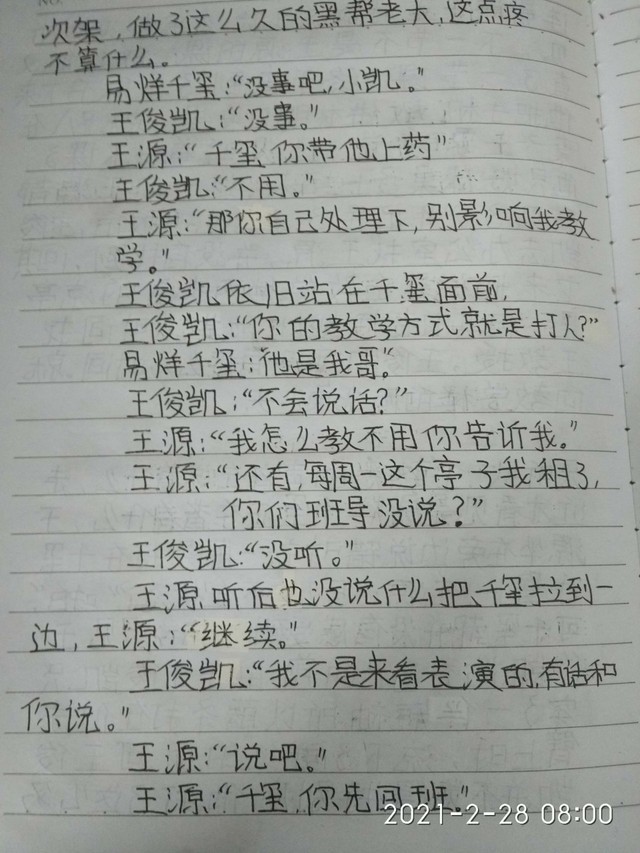 次架,做了这么久的黑帮老大,这点疼
不算什么。
易烊千玺:“没事吧,小凯。”
王俊凯:“没事。”
王源:“千玺,你带他上药”
王俊凯:“不用。”
王源:“那你自己处理下,别影响我教
学。”
王俊凯依旧站在千玺面前,
王俊凯:“你的教学方式就是打人?”
易烊千玺:“他是我哥。”
王俊凯:“不会说话?”
王源:“我怎么教不用你告诉我。”
王源:“还有,每周一这个亭子我租了,
你们班导没说?”
王俊凯:“没听。”
王源听后也没说什么把千玺拉到一
边,王源:“继续。”
王俊凯:“我不是来看表演的,有话和
你说。”
王源:“说吧。”
王源:“千玺,你先回班。”
2021-2-28 08:00